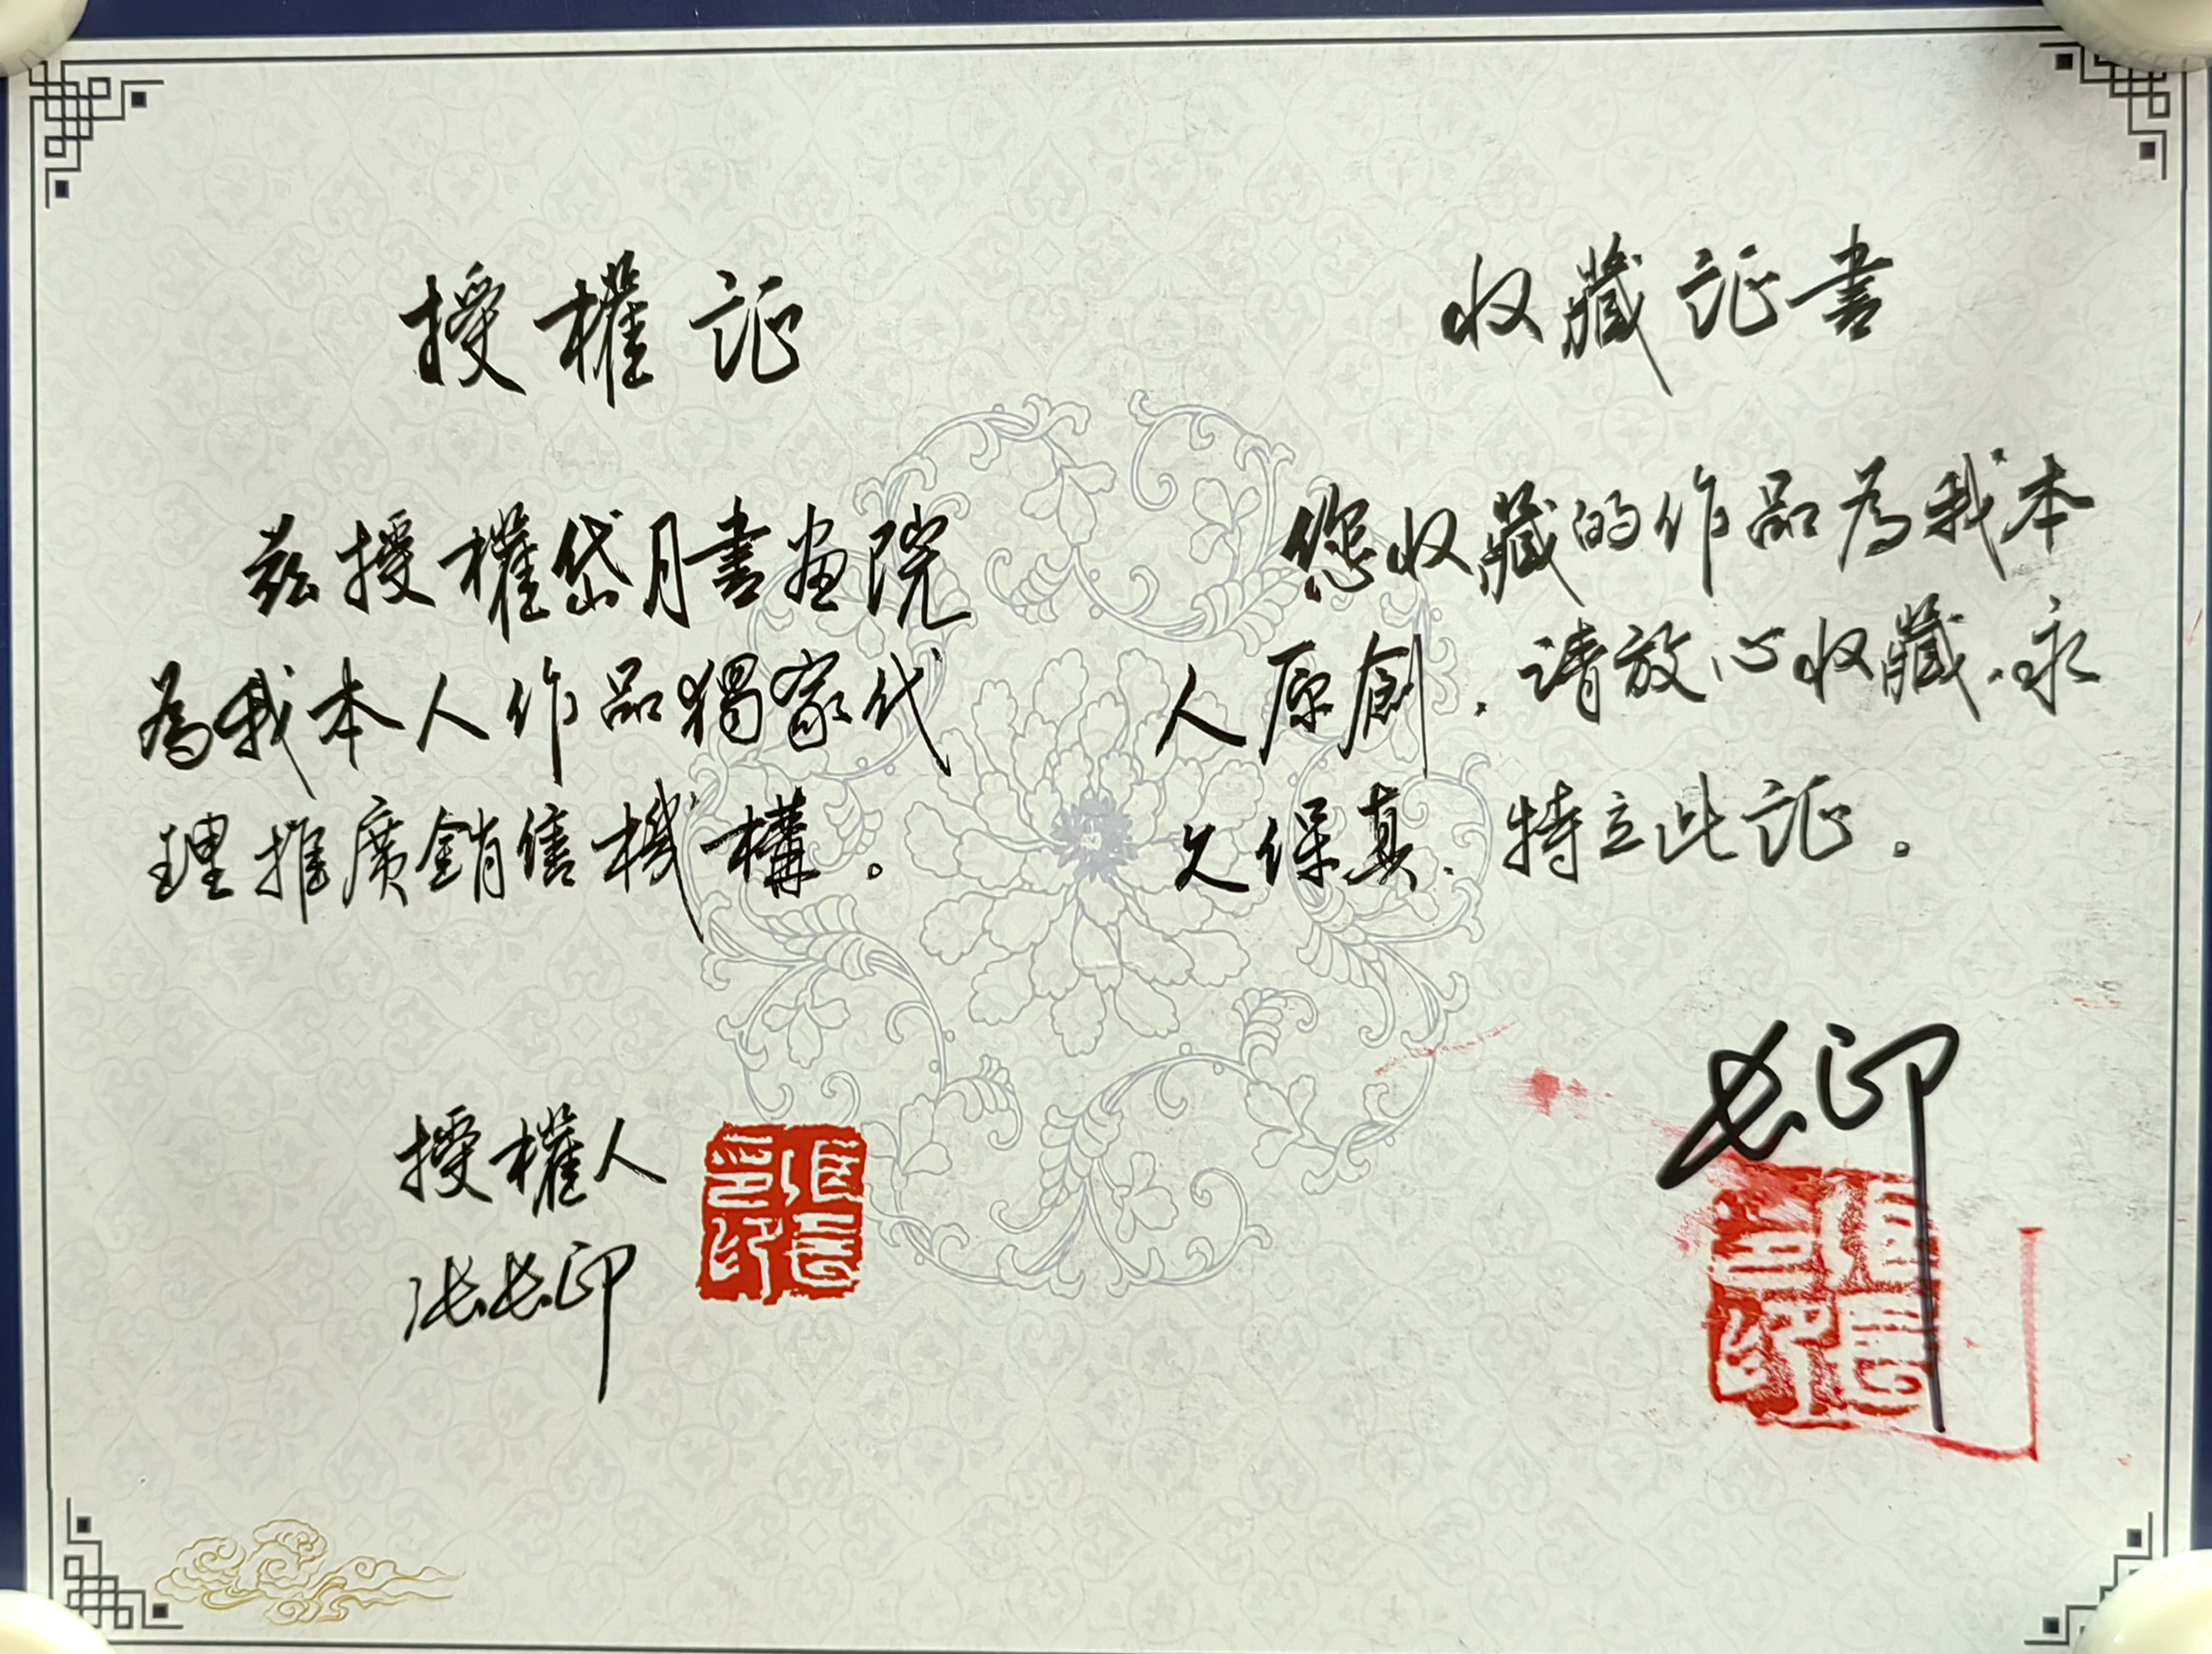 授權证
兹授權岱月書画院
為我本人作品獨家代
理推廣銷售機構。
授權人
张长印
收藏证書
您收藏的作品為我本
人原創，请放心收藏，永
久保真，特立此证。
长印